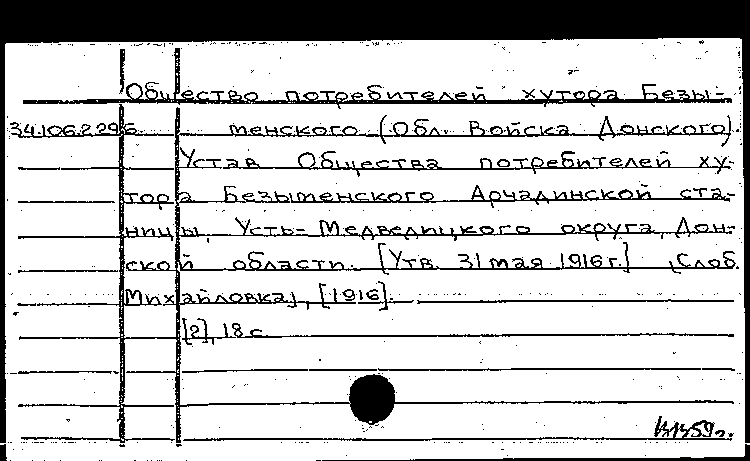 Общество потребителей хутора Безы-
34.106.2.296 менского (Обл. Войска Донского)
Устав Общества потребителей ху-
тора Безыменского Арчадинской ста-
ницы, Усть-Медведицкого округа, Дон-
ской области. [Утв. 31 мая 1916 г.] [Слоб.
Михайловка], [1916].
[2], 18 с.